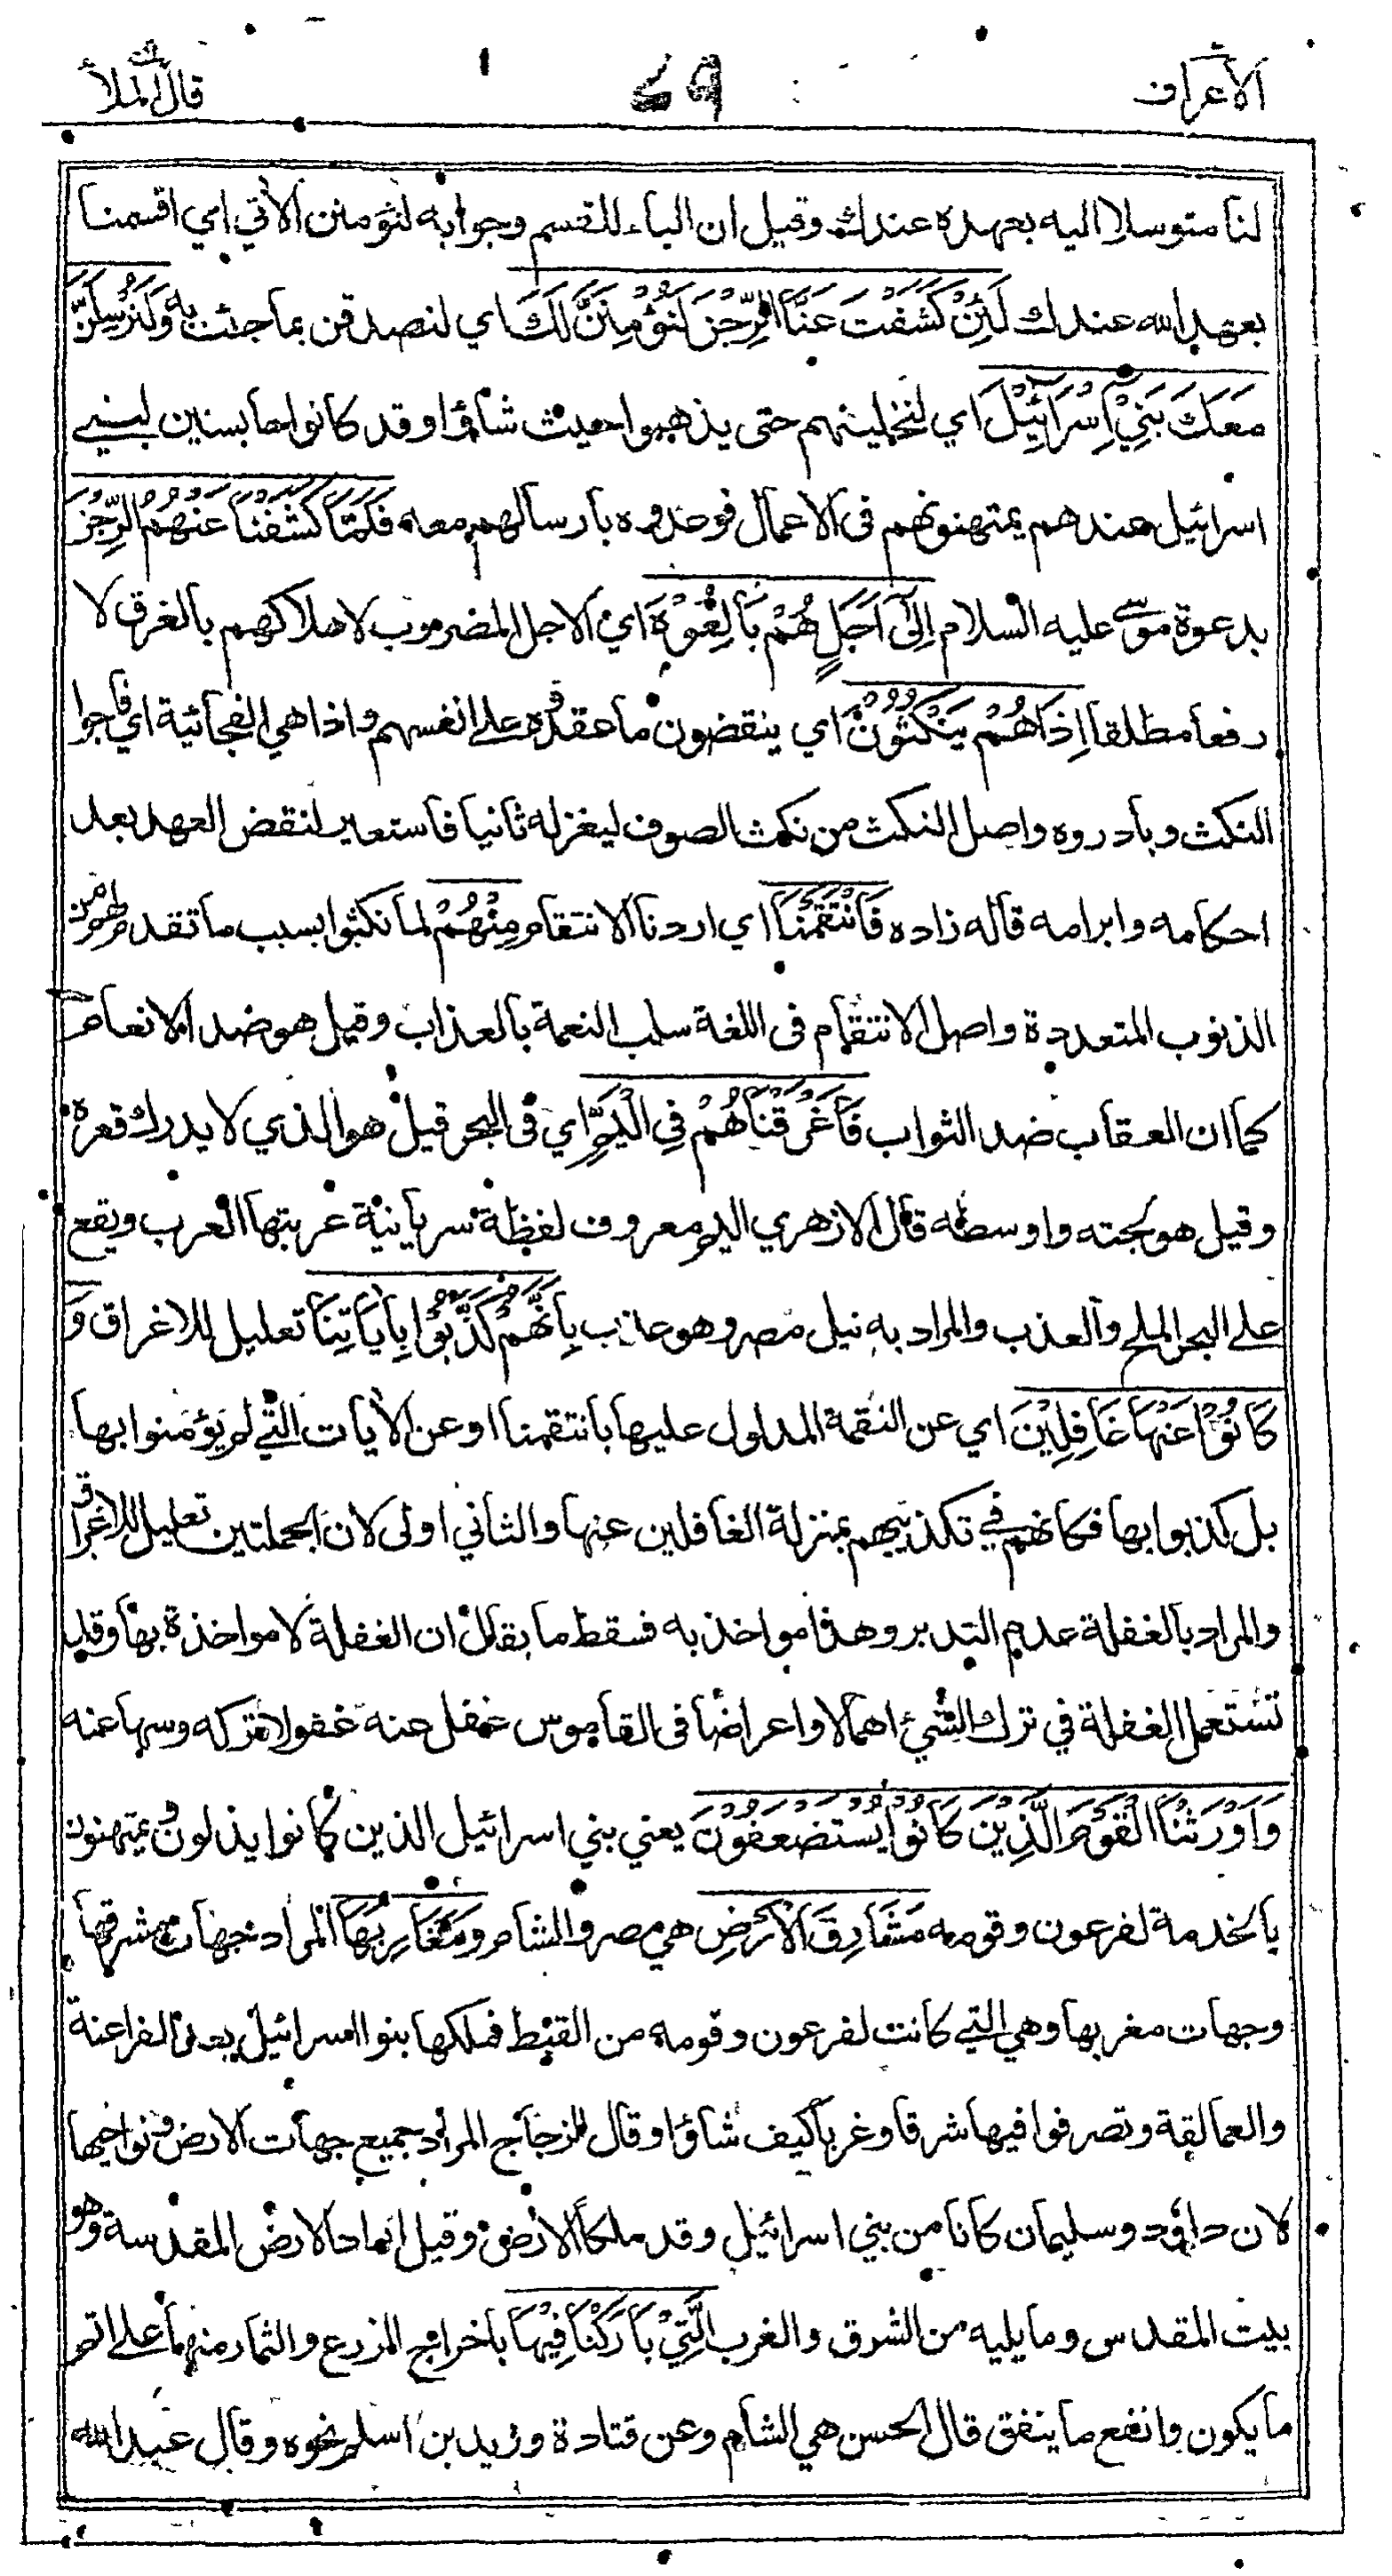 الأعراف ٦٩ قال الملأ
لنا متوسلا اليه بعهده عندك وقيل ان الباء للقسم وجوابه لنؤمنن الاٰتي اي اقسمنا
بعهد الله عندك لَئِنْ كَشَفْتَ عَنَّا الرِّجْزَ لَنُؤْمِنَنَّ لَكَ اي لنصدقن بما جئت به وَلَنُرْسِلَنَّ
مَعَكَ بَنِيْ اِسْرَائِيْلَ اي لنخلينهم حتى يذهبوا حيث شاؤا وقد كانوا حابسين لبني
اسرائيل عندهم يمتهنونهم فى الاعمال فوعدوه بارسالهم معه فَلَمَّا كَشَفْنَا عَنْهُمُ الرِّجْزَ
بدعوة موسى عليه السلام اِلىٰٓ اَجَلٍ هُمْ بَالِغُوْهُ اي الاجل المضروب لاهلاكهم بالغرق لا
رفعا مطلقا اِذَا هُمْ يَنْكُثُوْنَ اي ينقضون ما عقدوه على انفسهم واذا هي الفجائية اي فاجوا
النكث وبادروه واصل النكث من نكث الصوف ليغزله ثانيا فاستعير لنقض العهد بعد
احكامه وابرامه قاله زاده فَانْتَقَمْنَا اي اردنا الانتقام مِنْهُمْ لما نكثوا بسبب ما تقدم لهم من
الذنوب المتعددة واصل الانتقام فى اللغة سلب النعمة بالعذاب وقيل هو ضد الانعام
كما ان العقاب ضد الثواب فَاَغْرَقْنَاهُمْ فِي الْيَمِّ اي فى البحر قيل هو الذي لا يدرك قعره
وقيل هو لجته واوسطه قال الازهري اليم معروف لفظة سريانية عربتها العرب ويقع
على البحر الملح والعذب والمراد به نيل مصر وهو عذب بِاَنَّهُمْ كَذَّبُوْا بِاٰيَاتِنَا تعليل للاغراق وَ
كَانُوْا عَنْهَا غَافِلِيْنَ اي عن النقمة المدلول عليها بانتقمنا او عن الاٰيات التي لم يؤمنوا بها
بل كذبوا بها فكانهم في تكذيبهم بمنزلة الغافلين عنها والثاني اولى لان الجملتين تعليل للاغراق
والمراد بالغفلة عدم التدبر وهذا مواخذ به فسقط ما يقال ان الغفلة لا مواخذة بها وقد
تستعمل الغفلة في ترك الشيء اهمالا واعراضا فى القاموس غفل عنه غفولا تركه وسها عنه
وَاَوْرَثْنَا الْقَوْمَ الَّذِيْنَ كَانُوْا يُسْتَضْعَفُوْنَ يعني بني اسرائيل الذين كانوا يذلون ويمتهنون
بالخدمة لفرعون وقومه مَشَارِقَ الْاَرْضِ هي مصر والشام وَمَغَارِبَهَا المراد جهات مشرقها
وجهات مغربها وهي التي كانت لفرعون وقومه من القبط فملكها بنو اسرائيل بعد الفراعنة
والعمالقة وتصرفوا فيها شرقا وغربا كيف شاؤا وقال الزجاج المراد جميع جهات الارض ونواحيها
لان داؤد وسليمان كانا من بني اسرائيل وقد ملكا الارض وقيل انها الارض المقدسة وهو
بيت المقدس وما يليه من الشرق والغرب الَّتِيْ بَارَكْنَا فِيْهَا باخراج الزرع والثمار منها على اتم
ما يكون وانفع ما ينفق قال الحسن هي الشام وعن قتادة وزيد بن اسلم نحوه وقال عبد الله